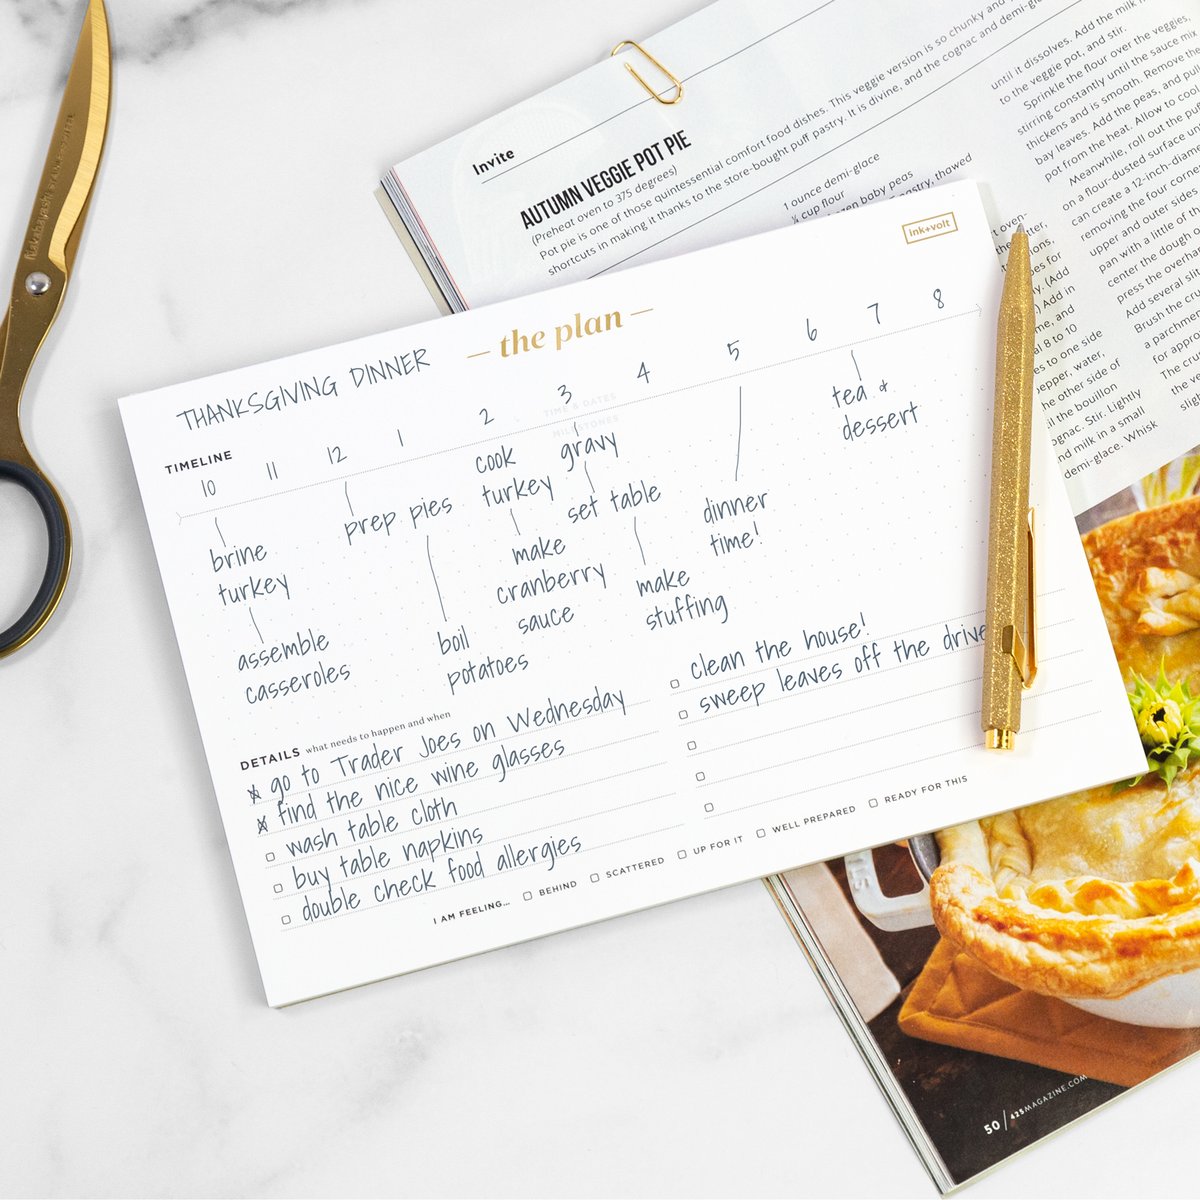 Invite
AUTUMN VEGGIE POT PIE
(Preheat oven to 375 degrees)
Pot pie is one of those quintessential comfort food dishes. This veggie version is so chunky and
shortcuts in making it thanks to the store-bought puff pastry. It is divine, and the cognac and demi-gl
1 ounce demi-glace
¼ cup flour
baby peas
thawed
until it dissolves. Add the milk
to the veggie pot, and stir.
Sprinkle the flour over the veggies,
stirring constantly until the sauce mix
thickens and is smooth. Remove the
bay leaves. Add the peas, and pull
pot from the heat. Allow to cool
Meanwhile, roll out the pu
on a flour-dusted surface u
can create a 12-inch-diame
removing the four corner
upper and outer sides
pan with a little of th
center the dough o
press the overha
Add several sli
Brush the cru
a parchmen
for approx
The crus
the ve
sligh
(Add
Add in
8 to 10
to one side
pepper, water,
the other side of
the bouillon
Stir. Lightly
and milk in a small
demi-glace. Whisk
ink+volt
— the plan —
THANKSGIVING DINNER
TIME & DATES
MILESTONES
TIMELINE
10 11 12 1 2 3 4 5 6 7 8
brine
turkey
assemble
casseroles
prep pies
boil
potatoes
cook
turkey
make
cranberry
sauce
gravy
set table
make
stuffing
dinner
time!
tea &
dessert
DETAILS what needs to happen and when
go to Trader Joes on Wednesday
find the nice wine glasses
wash table cloth
buy table napkins
double check food allergies
clean the house!
sweep leaves off the drive
I AM FEELING... BEHIND SCATTERED UP FOR IT WELL PREPARED READY FOR THIS
50 / 425MAGAZINE.COM